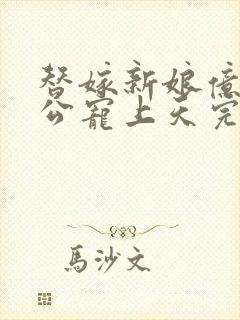 替嫁新娘億
公寵上天完
馬沙文